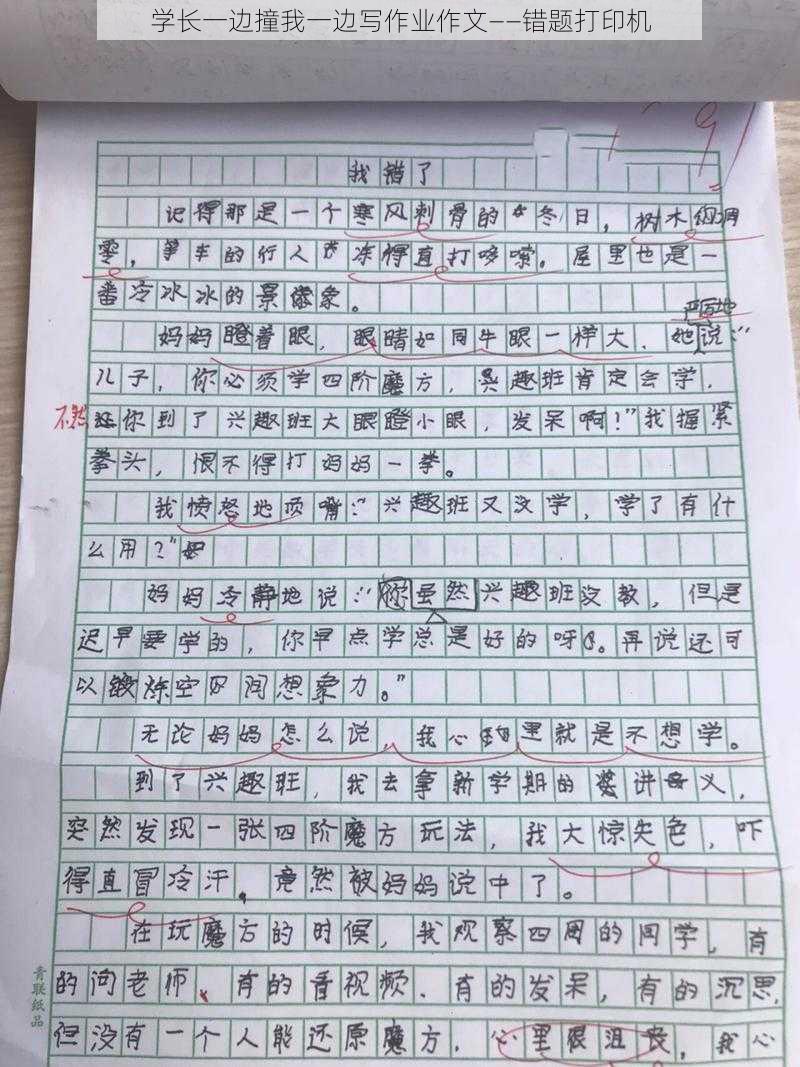 学长一边撞我一边写作业作文——错题打印机
91
我错了
记得那是一个寒风刺骨的冬日，树木凋
零，车的行人冻得直打哆嗦。屋里也是一
番冷冰冰的景象。
严厉地
妈妈瞪着眼，眼睛如同牛眼一样大，她说：“
儿子，你必须学四阶魔方，兴趣班肯定会学，
不然你到了兴趣班大眼瞪小眼，发呆啊！”我握紧
拳头，恨不得打妈妈一拳。
我愤怒地顶嘴：“兴趣班又没学，学了有什
么用？”
妈妈冷静地说：“你虽然兴趣班没教，但是
迟早要学的，你早点学总是好的呀。再说还可
以锻炼空间想象力。”
无论妈妈怎么说，我心里就是不想学。
到了兴趣班，我去拿新学期的讲义，
突然发现一张四阶魔方玩法，我大惊失色，吓
得直冒冷汗，竟然被妈妈说中了。
在玩魔方的时候，我观察四周的同学，有
的问老师、有的看视频、有的发呆，有的沉思，
但没有一个人能还原魔方，心里很沮丧，我心
青联纸品